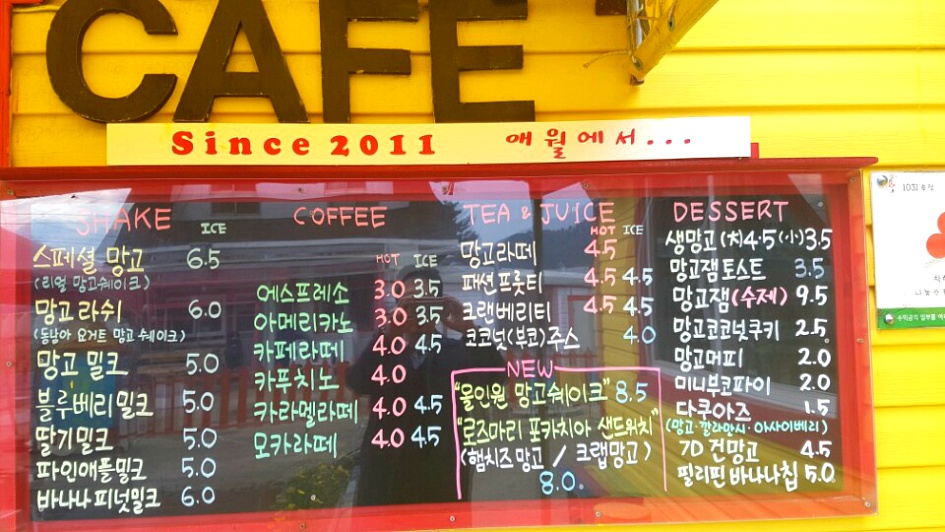 CAFE
Since 2011 애월에서...
SHAKE
ICE
스페셜 망고 6.5
(리얼 망고쉐이크)
망고 라쉬 6.0
(동남아 요거트 망고 쉐이크)
망고 밀크 5.0
블루베리밀크 5.0
딸기밀크 5.0
파인애플밀크 5.0
바나나피넛밀크 6.0
COFFEE
HOT ICE
에스프레소 3.0 3.5
아메리카노 3.0 3.5
카페라떼 4.0 4.5
카푸치노 4.0
카라멜라떼 4.0 4.5
모카라떼 4.0 4.5
TEA & JUICE
HOT ICE
망고라떼 4.5
패션프룻티 4.5 4.5
크랜베리티 4.5 4.5
코코넛(부코)주스 4.0
NEW
"올인원 망고쉐이크" 8.5
"로즈마리 포카치아 샌드위치"
(햄치즈망고 / 크랩망고)
8.0.
DESSERT
생망고 (大) 4.5 (小) 3.5
망고잼토스트 3.5
망고잼(수제) 9.5
망고코코넛쿠키 2.5
망고머피 2.0
미니부코파이 2.0
다쿠아즈 1.5
(망고·깔라만시·아사이베리)
7D 건망고 4.5
필리핀바나나칩 5.0
1031